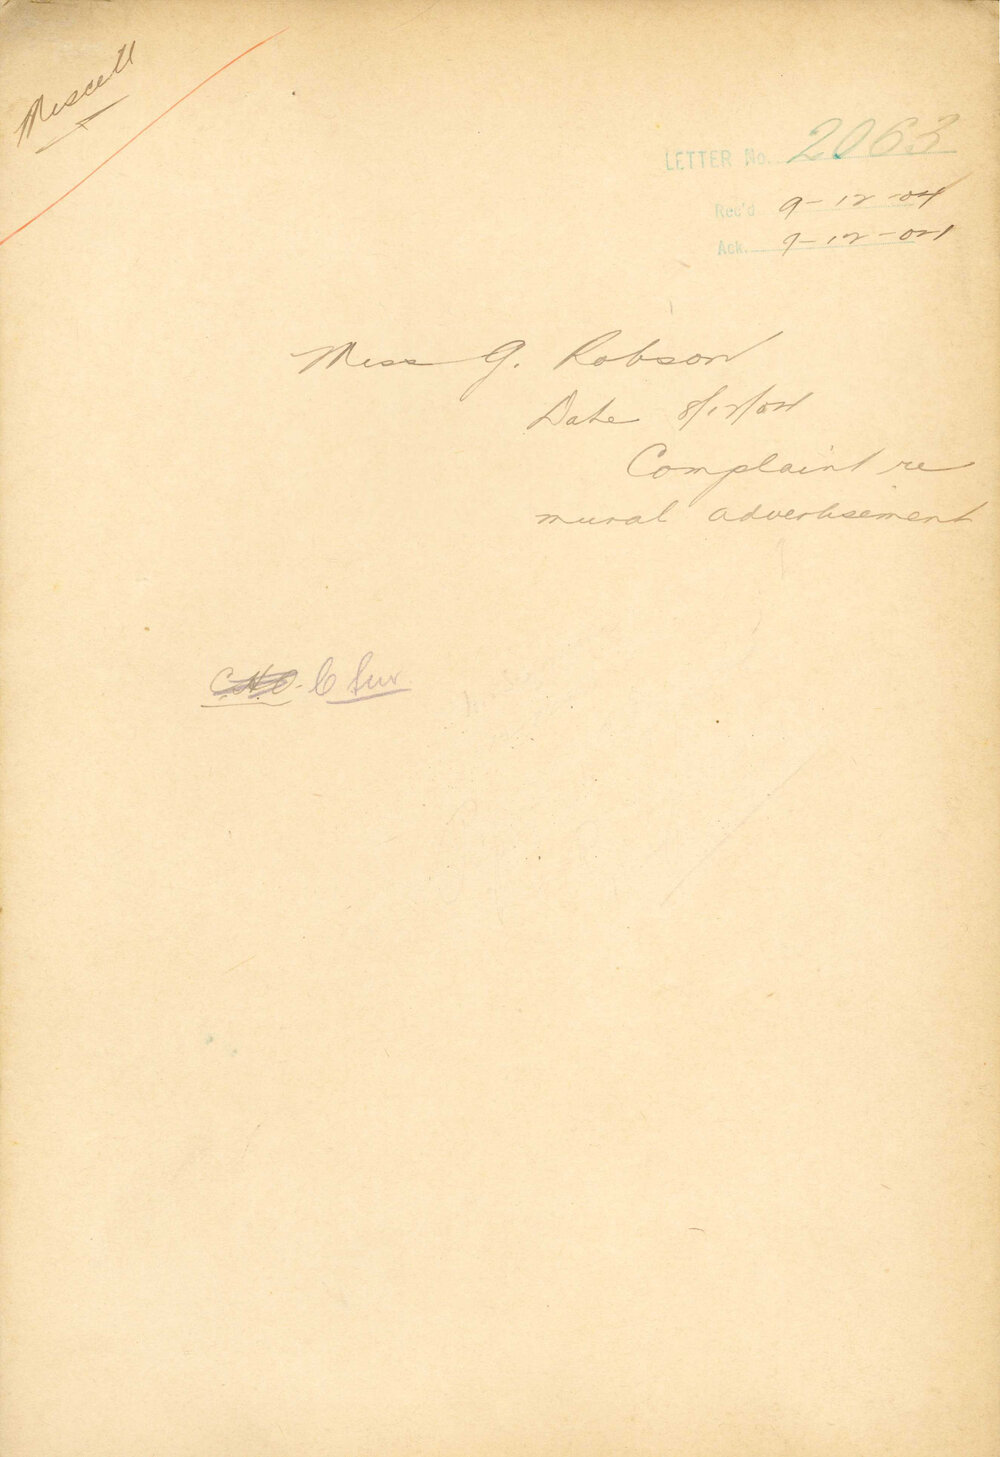 Miscell
LETTER No. 2063
Rec'd 9-12-04
Ack. 9-12-04
Miss G. Robson
Date 8/12/04
Complaint re
mural advertisement
C.H.O. C Sur